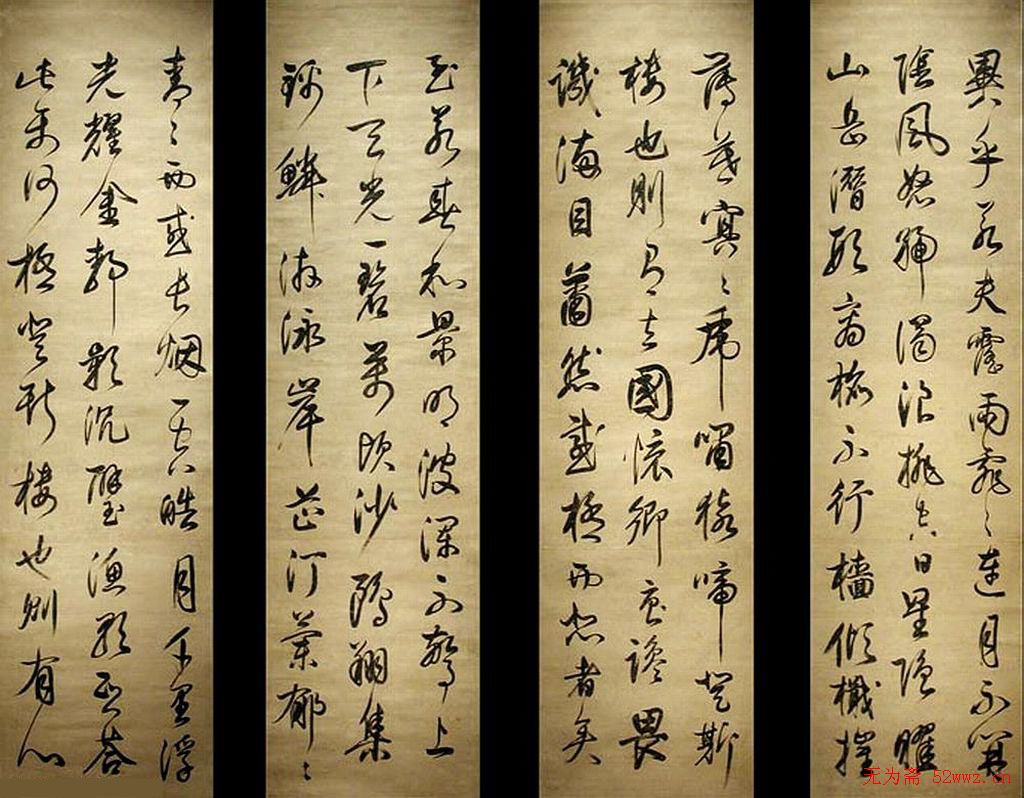 異乎若夫霪雨霏〻連月不開
陰風怒號濁浪排空日星隱曜
山岳潛形商旅不行檣傾檝摧
薄暮冥〻虎嘯猿啼登斯
樓也則有去國懷鄉憂讒畏
譏滿目蕭然感極而悲者矣
至若春和景明波瀾不驚上
下天光一碧萬頃沙鷗翔集
錦鱗游泳岸芷汀蘭郁〻
青〻而或長烟一空皓月千里浮
光耀金靜影沉璧漁歌互答
此樂何極登斯樓也則有心
无为斋 52wwz.cn